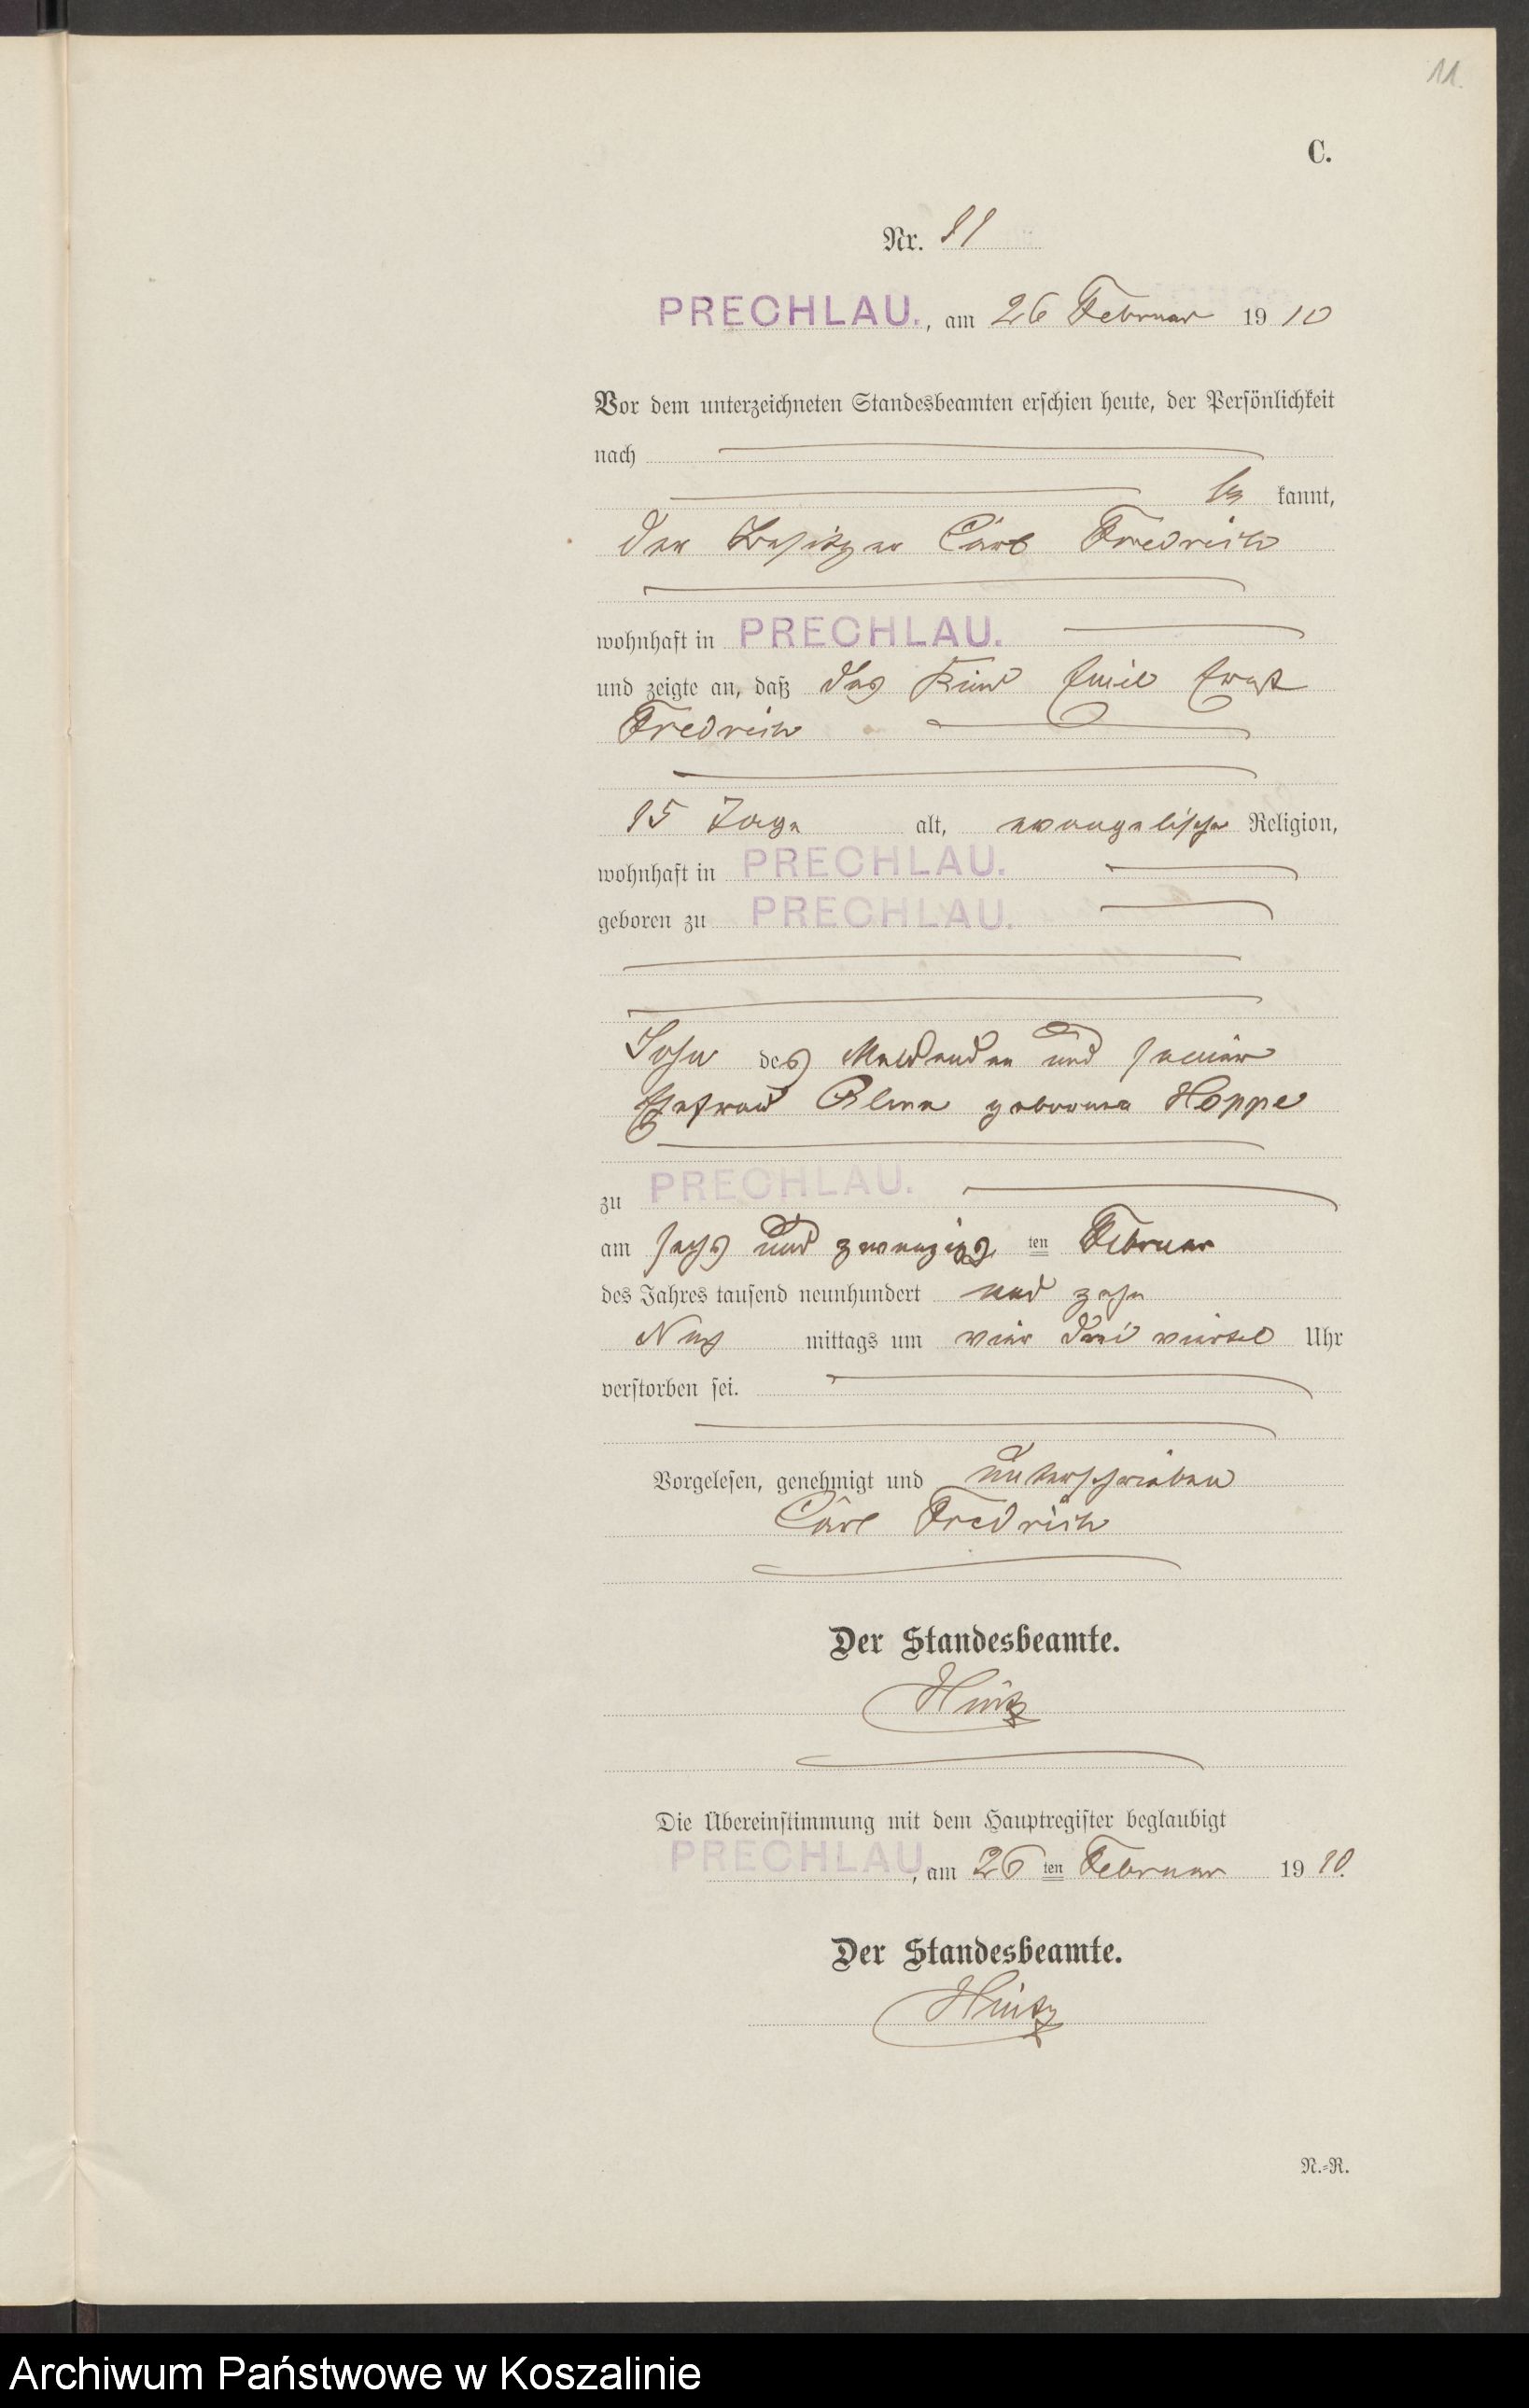 11.
C.
Nr. 11
PRECHLAU., am 26 Februar 1910
Vor dem unterzeichneten Standesbeamten erschien heute, der Persönlichkeit
nach
be kannt,
der Besitzer Carl Fredrich
wohnhaft in PRECHLAU.
und zeigte an, daß das Kind Emil Ernst
Fredrich
15 Tage alt, evangelischer Religion,
wohnhaft in PRECHLAU.
geboren zu PRECHLAU.
Sohn des Meldenden und seiner
Ehefrau Alma geborene Hoppe
zu PRECHLAU.
am sechs und zwanzigsten Februar
des Jahres tausend neunhundert und zehn
Nach mittags um vier drei viertel Uhr
verstorben sei.
Vorgelesen, genehmigt und unterschrieben
Carl Fredrich
Der Standesbeamte.
Hintz
Die Übereinstimmung mit dem Hauptregister beglaubigt
PRECHLAU, am 26ten Februar 1910.
Der Standesbeamte.
Hintz
N.=R.
Archiwum Państwowe w Koszalinie